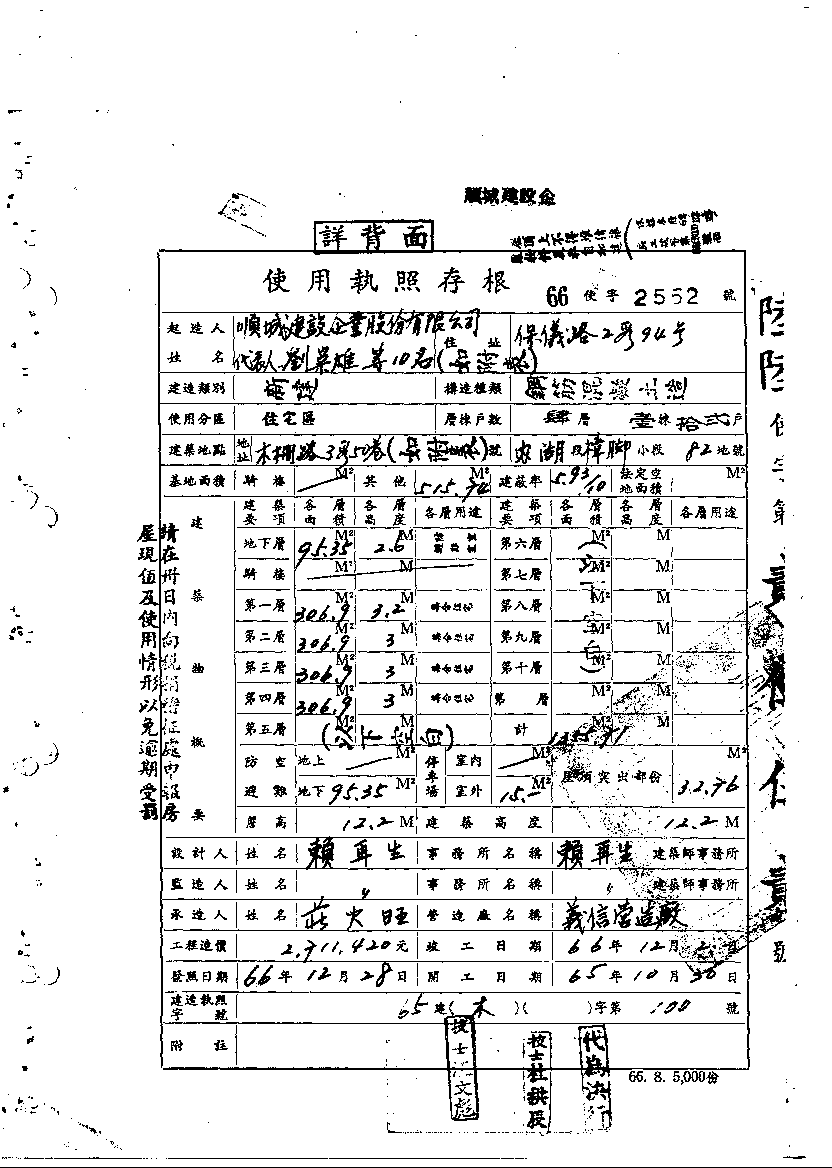 順城建設企
詳背面
使用執照存根
66 使字 2552 號
起造人姓名 順城建設企業股份有限公司 代表人劉榮雄等10名(如附表) 住址 保儀路2号94号
建造類別 新建 構造種類 鋼筋混凝土造
使用分區 住宅區 層棟戶數 肆層 壹棟 拾貳戶
建築地點 地址 木柵路3号50巷(如附表)號 內湖段樟腳小段 82地號
基地面積 騎樓 M² 其他 515.94 M² 建蔽率 5.93/10 法定空地面積 M²
建築要項 各層面積 各層高度 各層用途 建築要項 各層面積 各層高度 各層用途
地下層 95.35 M² 2.6 M 第六層 M² M
騎樓 M² M 第七層 M² M
第一層 306.9 M² 3.2 M 集合住宅 第八層 M² M
第二層 306.9 M² 3 M 集合住宅 第九層 M² M
第三層 306.9 M² 3 M 集合住宅 第十層 M² M
第四層 306.9 M² 3 M 集合住宅 第 層 M² M
第五層 M² M (以下空白) 計 M² M
(以下空白)
防空避難 地上 M² 停車場 室內 M² 屋頂突出部份 32.76 M²
地下 95.35 M² 室外 15.- M²
簷高 12.2 M 建築高度 12.2 M
設計人 姓名 賴再生 事務所名稱 賴再生 建築師事務所
監造人 姓名 〃 事務所名稱 〃 建築師事務所
承造人 姓名 莊火旺 營造廠名稱 義信營造廠
工程造價 2,711,420元 竣工日期 66年12月2日
發照日期 66年12月28日 開工日期 65年10月30日
建造執照字號 65建(木)( )字第 100 號
附註
建築概要
請在卅日內向稅捐稽征處申報房
屋現值及使用情形以免逾期受罰
66. 8. 5,000份
技士 文彪
技士杜拱辰
代為決行